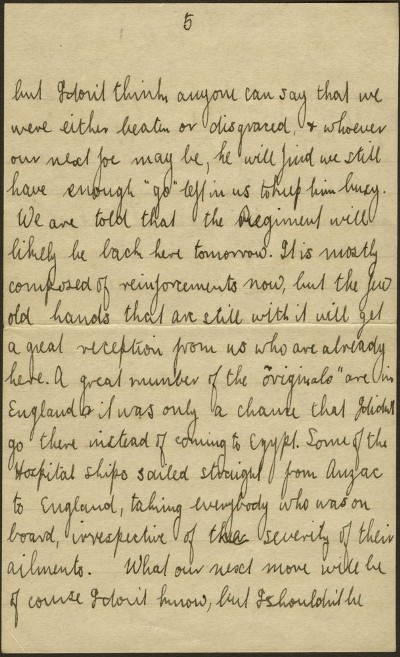 5
but I don't think anyone can say that we
were either beaten or disgraced, & whoever
our next foe may be, he will find we still
have enough "go" left in us to keep him busy.
We are told that the Regiment will
likely be back here tomorrow. It is mostly
composed of reinforcements now, but the few
old hands that are still with it will get
a great reception from us who are already
here. A great number of the "originals" are in
England & it was only a chance that I didn't
go there instead of coming to Egypt. Some of the
Hospital ships sailed straight from Anzac
to England, taking everybody who was on
board, irrespective of the severity of their
ailments. What our next move will be
of course I don't know, but I shouldn't be